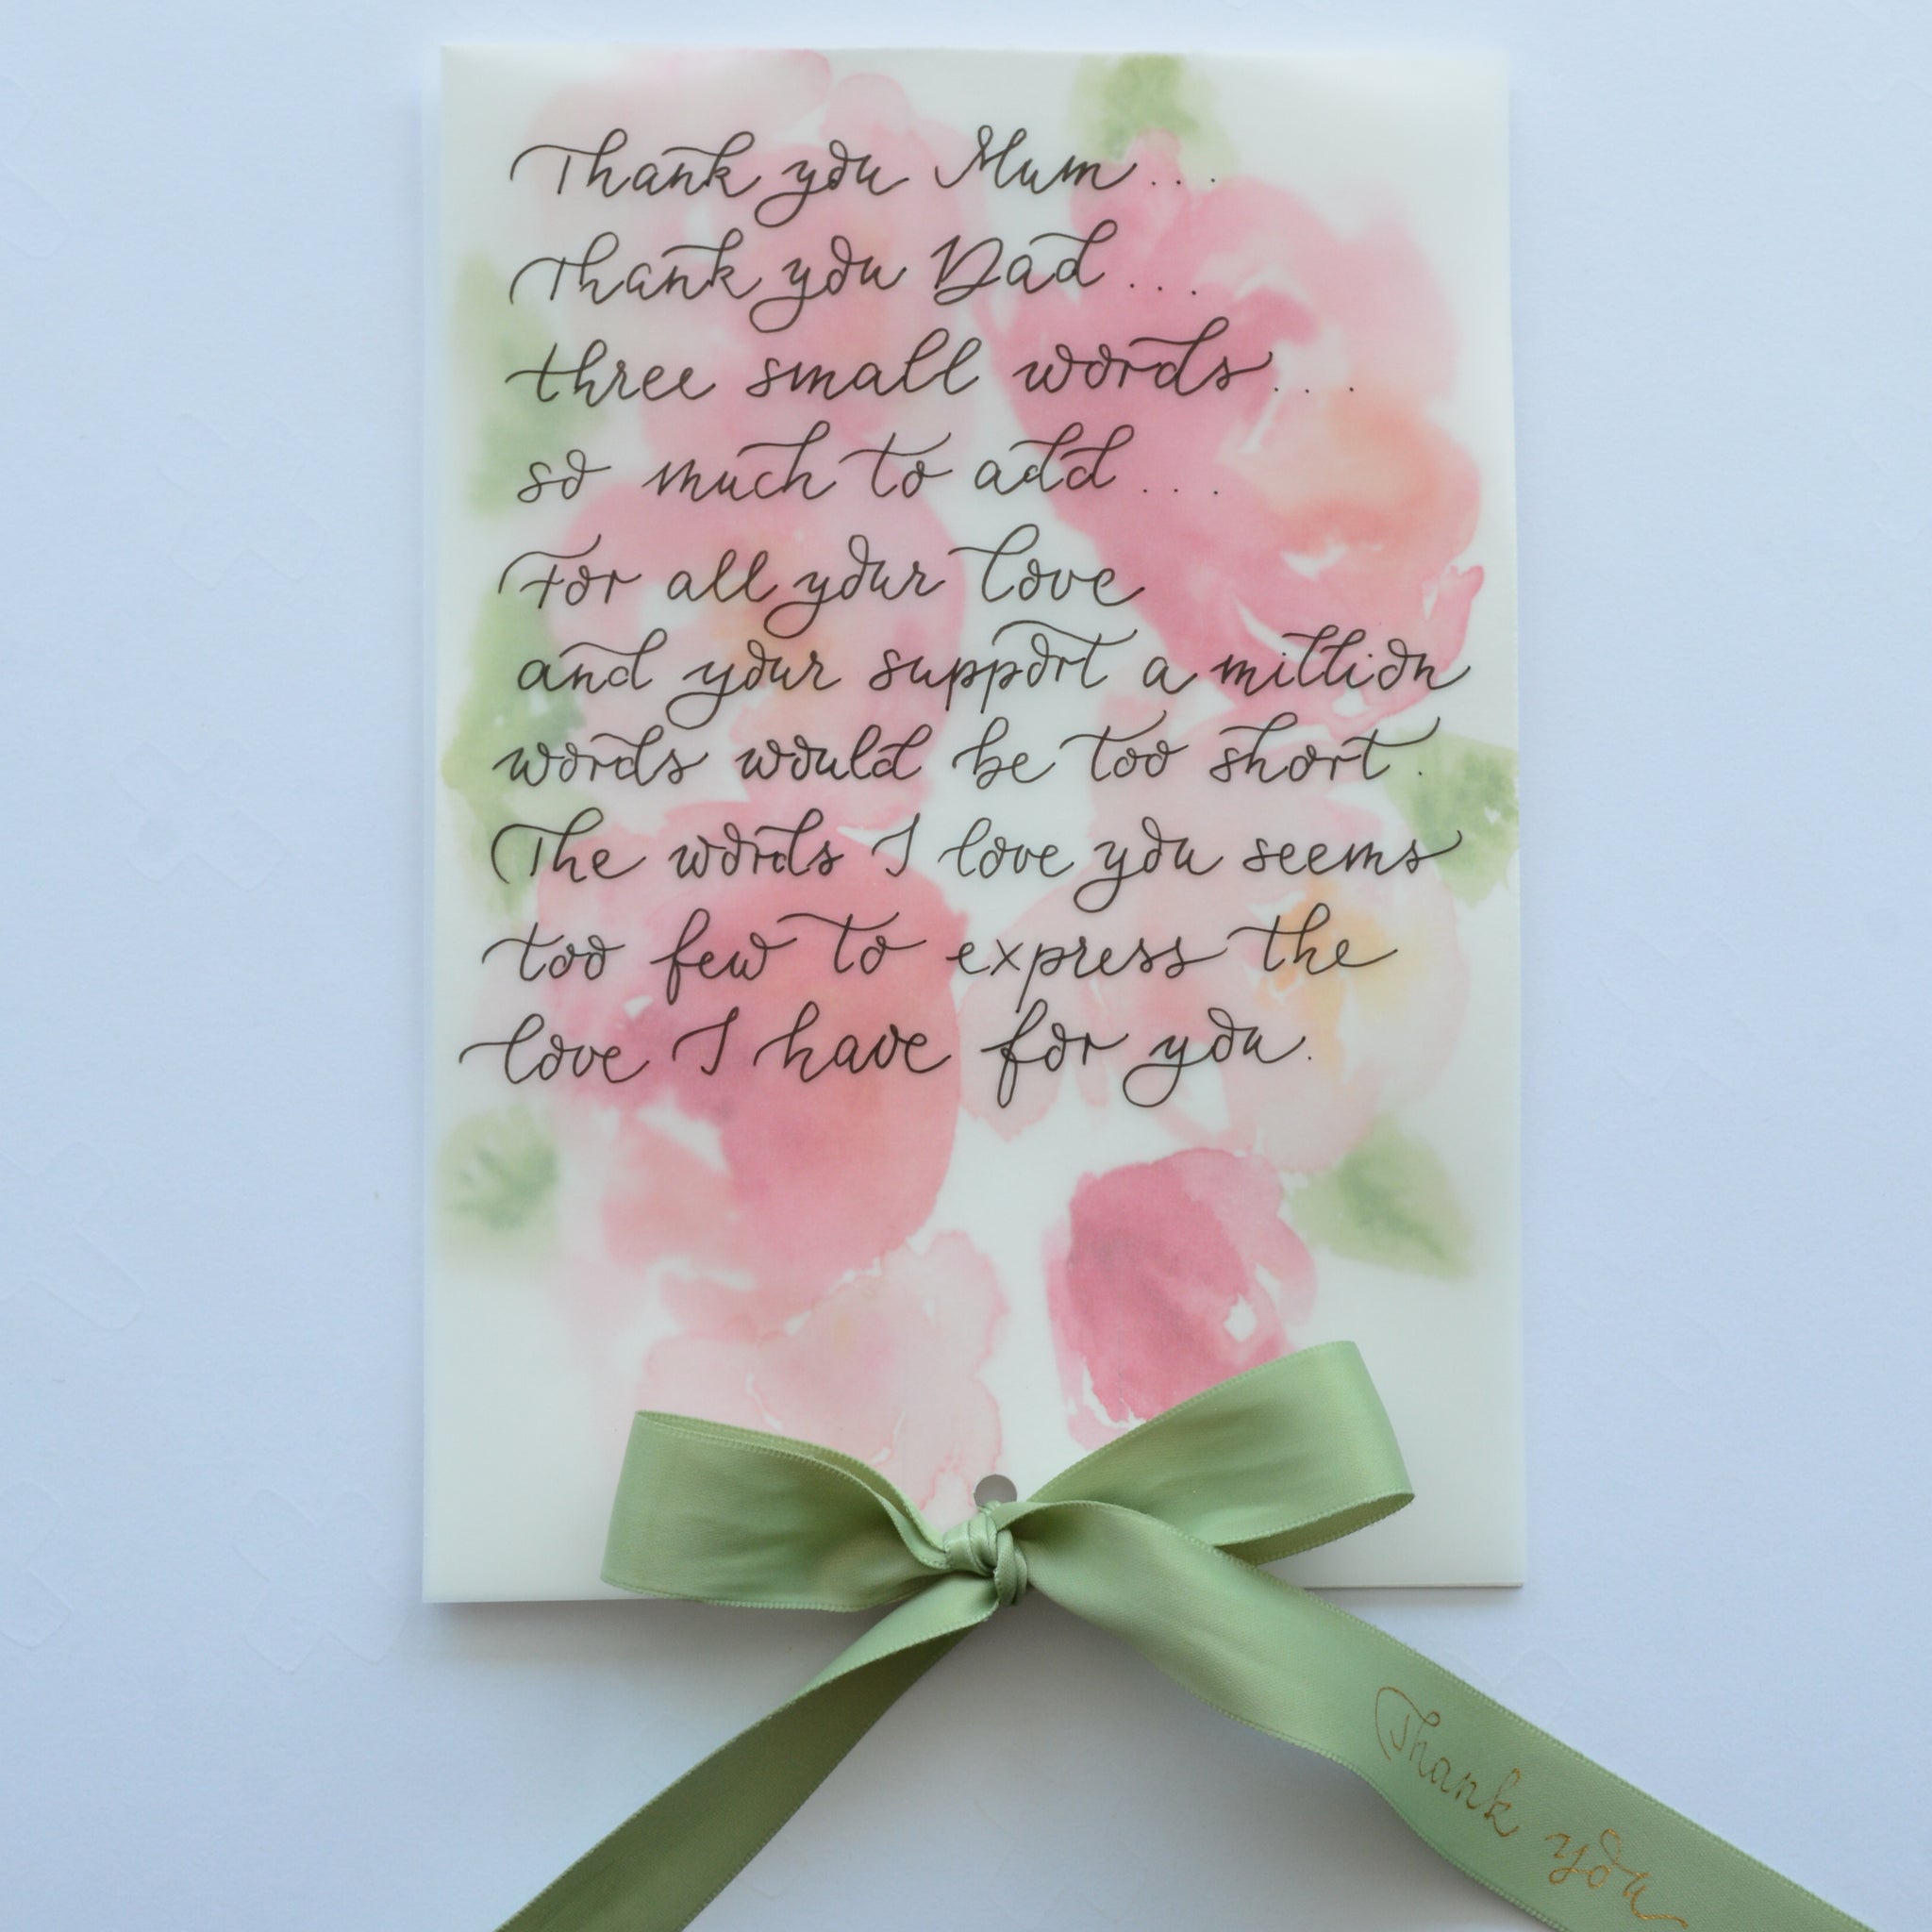 Thank you Mum...
Thank you Dad...
three small words...
so much to add...
For all your love
and your support a million
words would be too short.
The words I love you seems
too few to express the
love I have for you.
Thank you